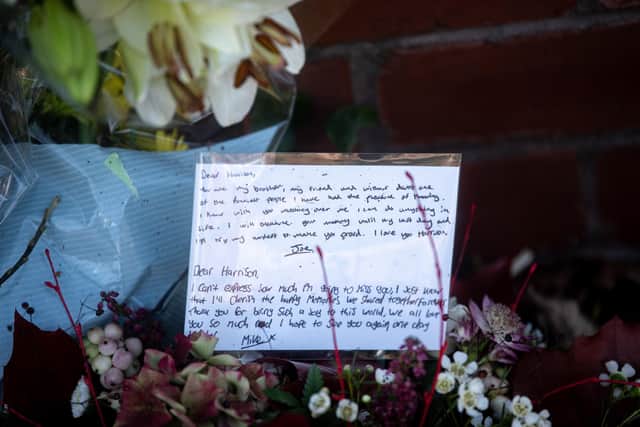 Dear Harrison,
You are my brother, my friend and without doubt one
of the funniest people I have had the pleasure of meeting.
I know with you watching over me I can do anything in
life. I will treasure your memory until my last day and
I'll try my hardest to make you proud. I love you Harrison.
Joe
Dear Harrison,
I can't express how much I'm going to miss you, I just know
that I'll cherish the happy memories we shared together forever
thank you for being such a joy to this world, we all love
you so much and I hope to see you again one day
Mike x